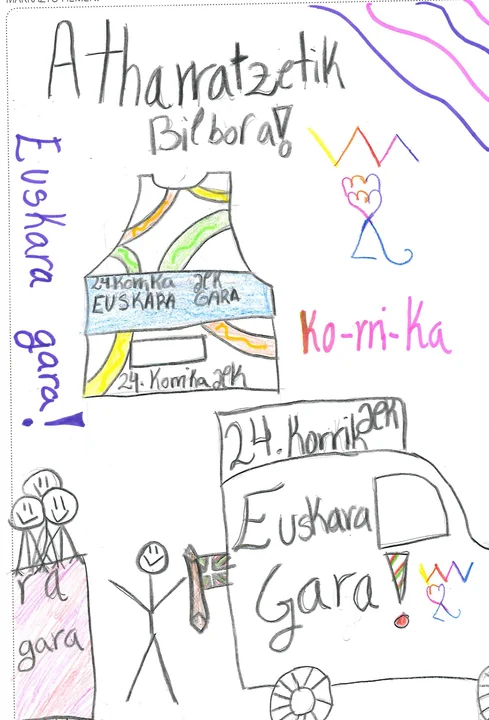 Atharratzetik
Bilbora!
Euskara gara!
24.Korrika aek
EUSKARA GARA
24. Korrika aek
Ko-rri-Ka
24. Korrik aek
Euskara
Gara!
ra
gara